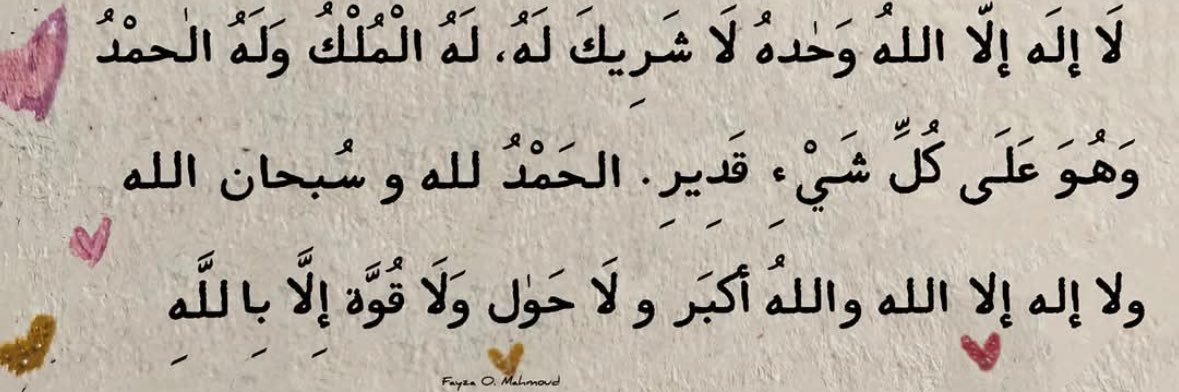 لَا إِلَه إِلَّا اللهُ وَحْدهُ لَا شَرِيكَ لَهُ، لَهُ الْمُلْكُ وَلَهُ الْحمْدُ
وَهُوَ عَلَى كُلِّ شَيْءٍ قَدِيرِ. الحَمْدُ لله و سُبحان الله
ولا إله إلا الله واللهُ أكبَر و لَا حَوْل وَلَا قُوَّة إِلَّا بِاللَّهِ
Fayza O. Mahmoud